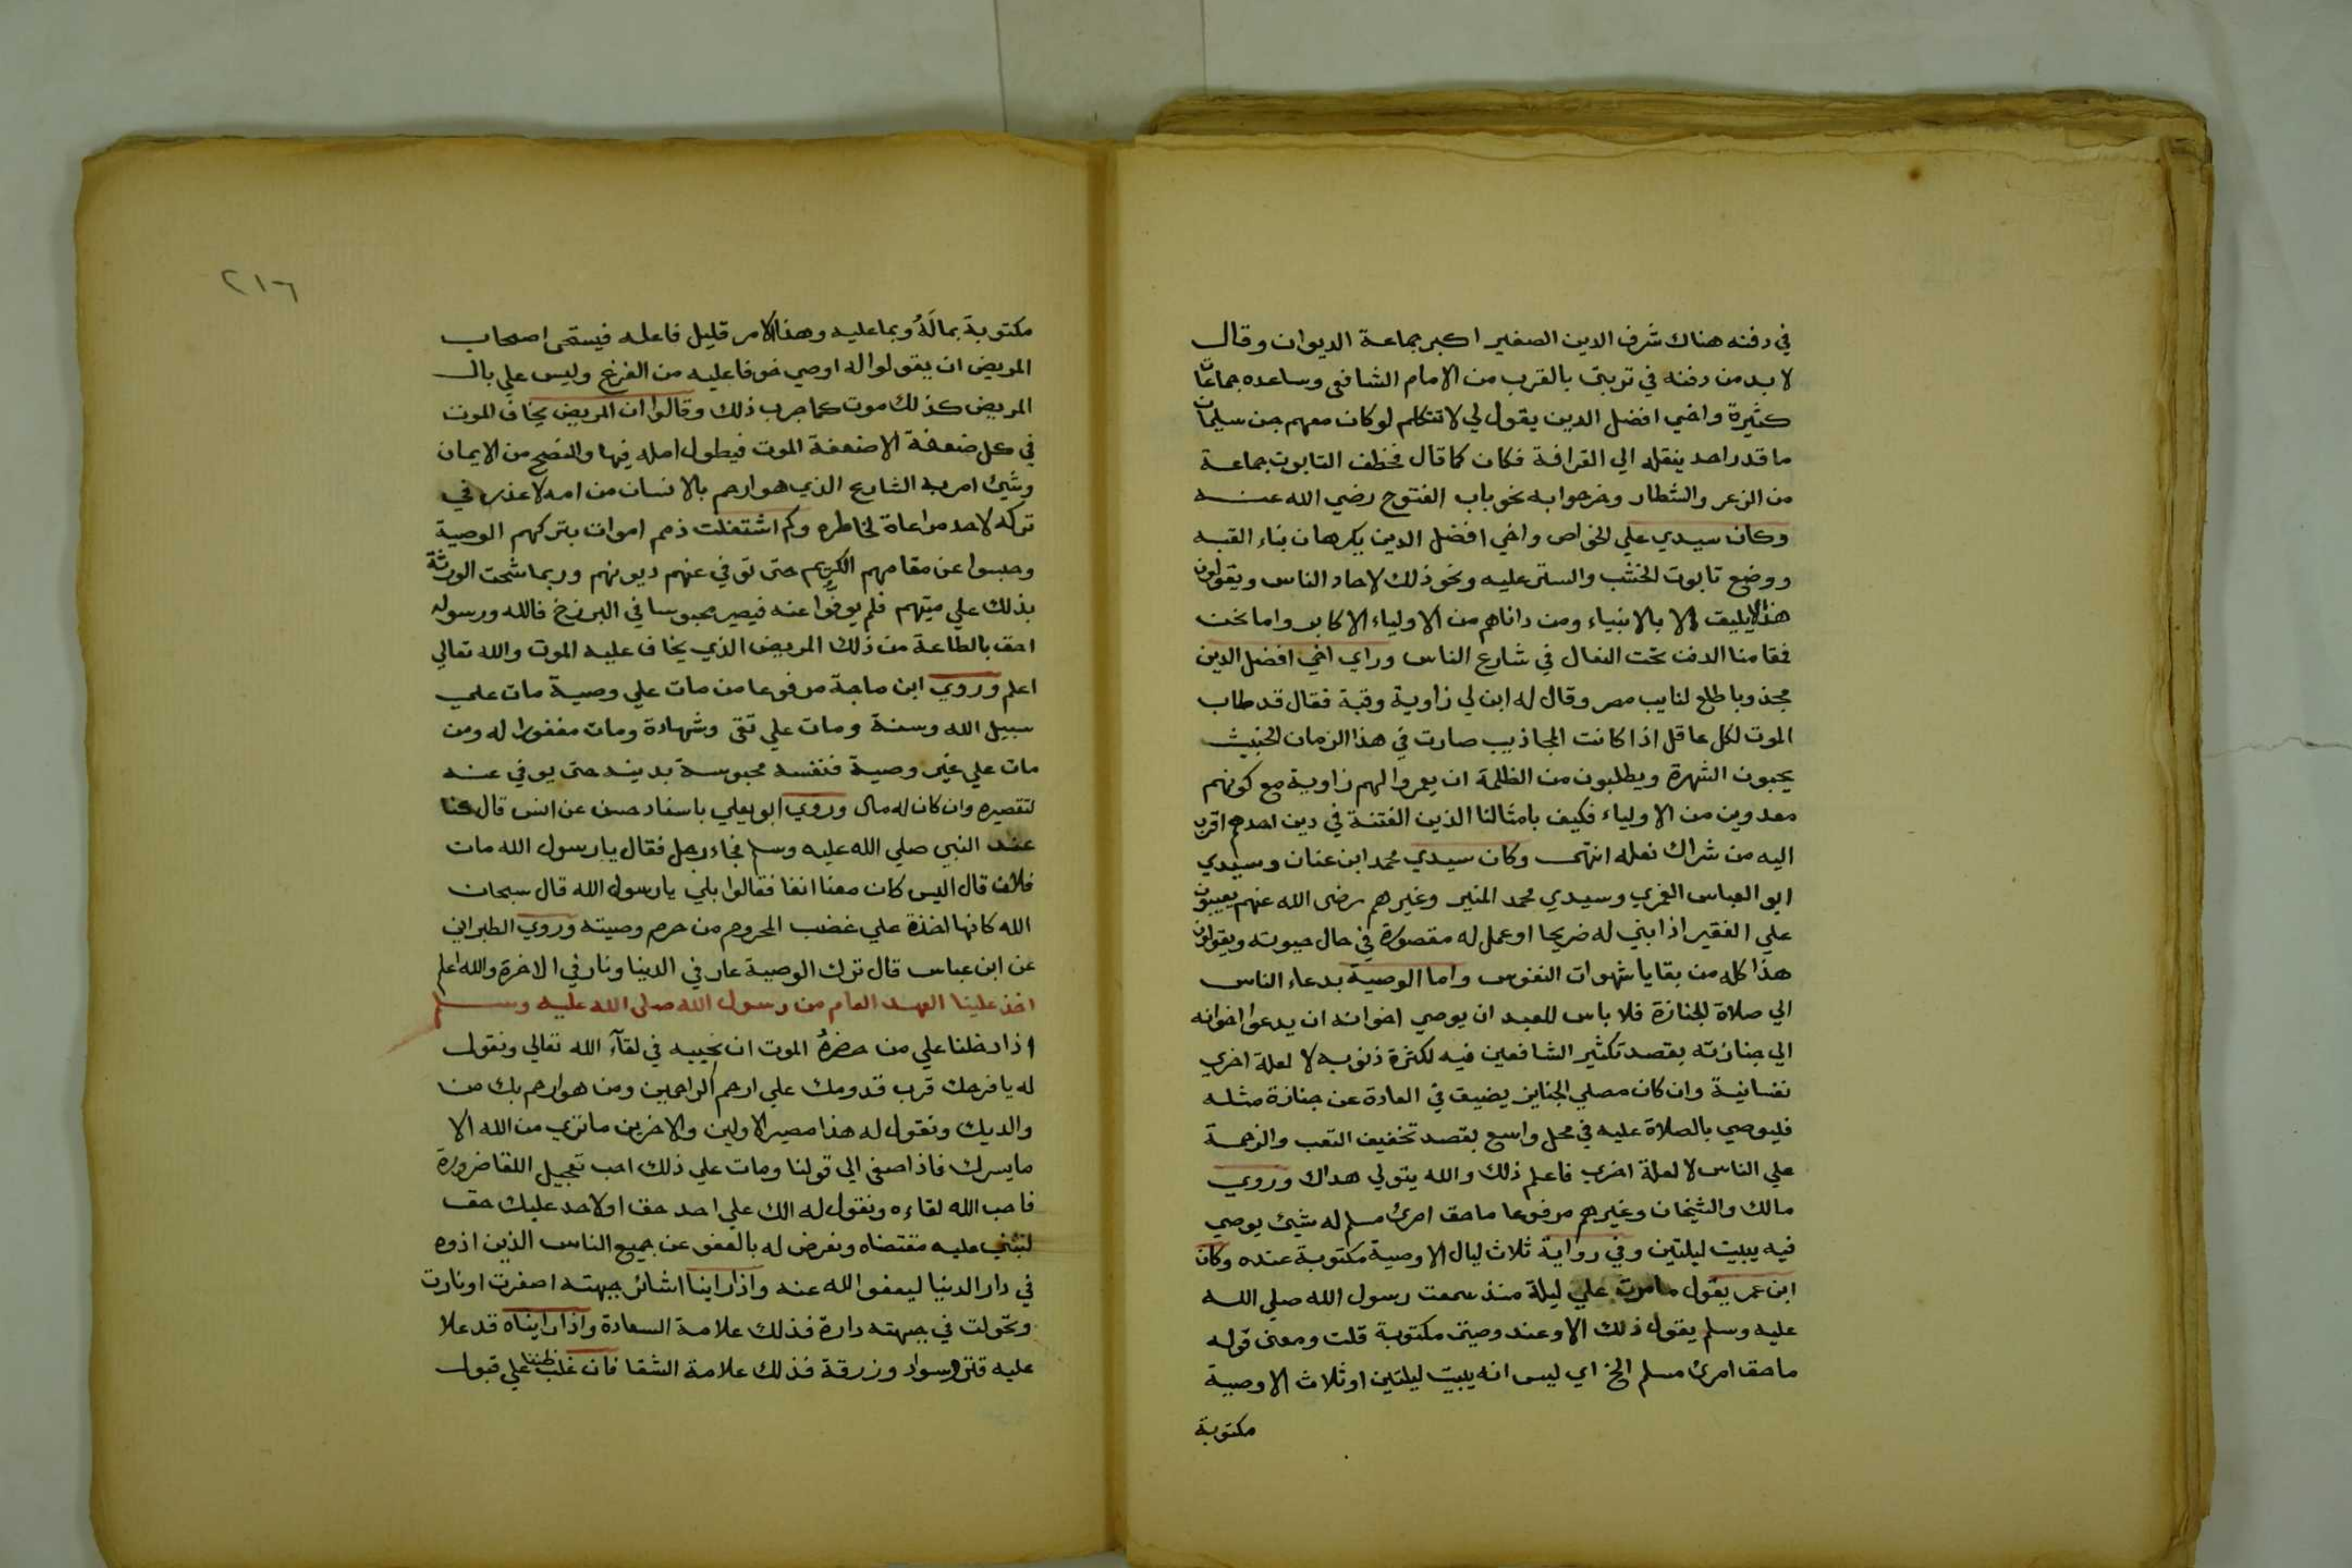 في دفنه هناك شرف الدين الصغير اكبر جماعة الديوان وقال
لا بد من دفنه في تربتي بالقرب من الامام الشافعي وساعده جماعات
كثيرة واخي افضل الدين يقول لي لا تتكلم لو كان معهم جن سليمان
ما قدر احد ينقله الي القرافة فكان كما قال فخطف التابوت جماعة
من الزعر والشطار وخرجوا به نحو باب الفتوح رضي الله عنه
وكان سيدي علي الخواص واخي افضل الدين يكرهان بناء القبه
ووضع تابوت الخشب والستر عليه ونحو ذلك لاحاد الناس ويقولون
هذا لا يليق الا بالانبياء ومن داناهم من الاولياء الاكابر واما نحن
فمقامنا الدفن تحت النعال في شارع الناس وراي اخي افضل الدين
مجذوبا طلع لنايب مصر وقال له ابن لي زاوية وقبة فقال قد طاب
الموت لكل عاقل اذا كانت المجاذيب صارت في هذا الزمان الخبيث
يحبون الشهرة ويطلبون من الظلمة ان يعمروا لهم زاوية مع كونهم
معدوين من الاولياء فكيف بامثالنا الذين الفتنة في دين احدهم اقرب
اليه من شراك نعله انتهى وكان سيدي محمد ابن عنان وسيدي
ابو العباس الغمري وسيدي محمد المنير وغيرهم رضي الله عنهم يعيبون
علي الفقير اذا بني له ضريحا او عمل له مقصورة في حال حيوته ويقولون
هذا كله من بقايا شهوات النفوس واما الوصية بدعاء الناس
الي صلاة الجنازة فلا باس للعبد ان يوصي اخوانه ان يدعوا اخوانه
الي جنازته بقصد تكثير الشافعين فيه لكثرة ذنوبه لا لعلة اخري
نفسانية وان كان مصلي الجنايز يضيق في العادة عن جنازة مثله
فليوصي بالصلاة عليه في محل واسع بقصد تخفيف التعب والزحمة
علي الناس لا لعلة اخري فاعلم ذلك والله يتولي هداك وروي
مالك والشيخان وغيرهم مرفوعا ما حق امرئ مسلم له شيئ يوصي
فيه يبيت ليلتين وفي رواية ثلاث ليال الا وصية مكتوبة عنده وكان
ابن عمر يقول ما مرت علي ليلة منذ سمعت رسول الله صلي الله
عليه وسلم يقول ذلك الا وعند وصيتي مكتوبة قلت ومعني قوله
ما حق امرئ مسلم الخ اي ليس انه يبيت ليلتين او ثلاث الا وصية
مكتوبة
٢١٦
مكتوبة بما لَهُ وبما عليه وهذا الامر قليل فاعله فيستحي اصحاب
المريض ان يقولوا له اوصي خوفا عليه من الفزع وليس علي بال
المريض كذلك موت كما جرب ذلك وقالوا ان المريض يخاف الموت
في كل ضعفة الا ضعفة الموت فيطول امله فيها والنصح من الايمان
وشيئ امر به الشارع الذي هو ارحم بالانسان من امه لا عذر في
تركه لاحد مراعاة لخاطره وكم اشتغلت ذمم اموات بتركهم الوصية
وحبسوا عن مقامهم الكريم حتى توفي عنهم ديونهم وربما شحت الورثة
بذلك علي ميتهم فلم يوفوا عنه فيصير محبوسا في البرزخ فالله ورسوله
احق بالطاعة من ذلك المريض الذي يخاف عليه الموت والله تعالي
اعلم وروي ابن ماجة مرفوعا من مات علي وصية مات علي
سبيل الله وسنة ومات علي تقى وشهادة ومات مغفورا له ومن
مات علي غير وصية فنفسه محبوسة بدينه حتى يوفي عنه
لتقصيره وان كان له مال وروي ابو يعلي باسناد حسن عن انس قال كنا
عند النبي صلي الله عليه وسلم فجاء رجل فقال يا رسول الله مات
فلان قال اليس كان معنا انفا فقالوا بلي يا رسول الله قال سبحان
الله كانها اخذة علي غضب المحروم من حرم وصيته وروي الطبراني
عن ابن عباس قال ترك الوصية عار في الدنيا ونار في الاخرة والله اعلم
اخذ علينا العهد العام من رسول الله صلى الله عليه وسلم
اذا دخلنا علي من حضرهُ الموت ان نحببه في لقآء الله تعالي ونقول
له يا فرحك قرب قدومك علي ارحم الراحمين ومن هو ارحم بك من
والديك ونقول له هذا مصير الاولين والاخرين ما تري من الله الا
ما يسرك فاذا اصغي الي قولنا ومات علي ذلك احب تعجيل اللقا ضرورة
فاحب الله لقاءه ونقول له الك علي احد حق او لاحد عليك حق
لنبني عليه مقتضاه ونعرض له بالعفو عن جميع الناس الذين اذوه
في دار الدنيا ليعفو الله عنه واذا راينا اشائر جبهته اصفرت او نارت
وتحولت في جبهته دارة فذلك علامة السعادة واذا رايناه قد علا
عليه قتر وسواد وزرقة فذلك علامة الشقا فان غلب ظننا علي قبول